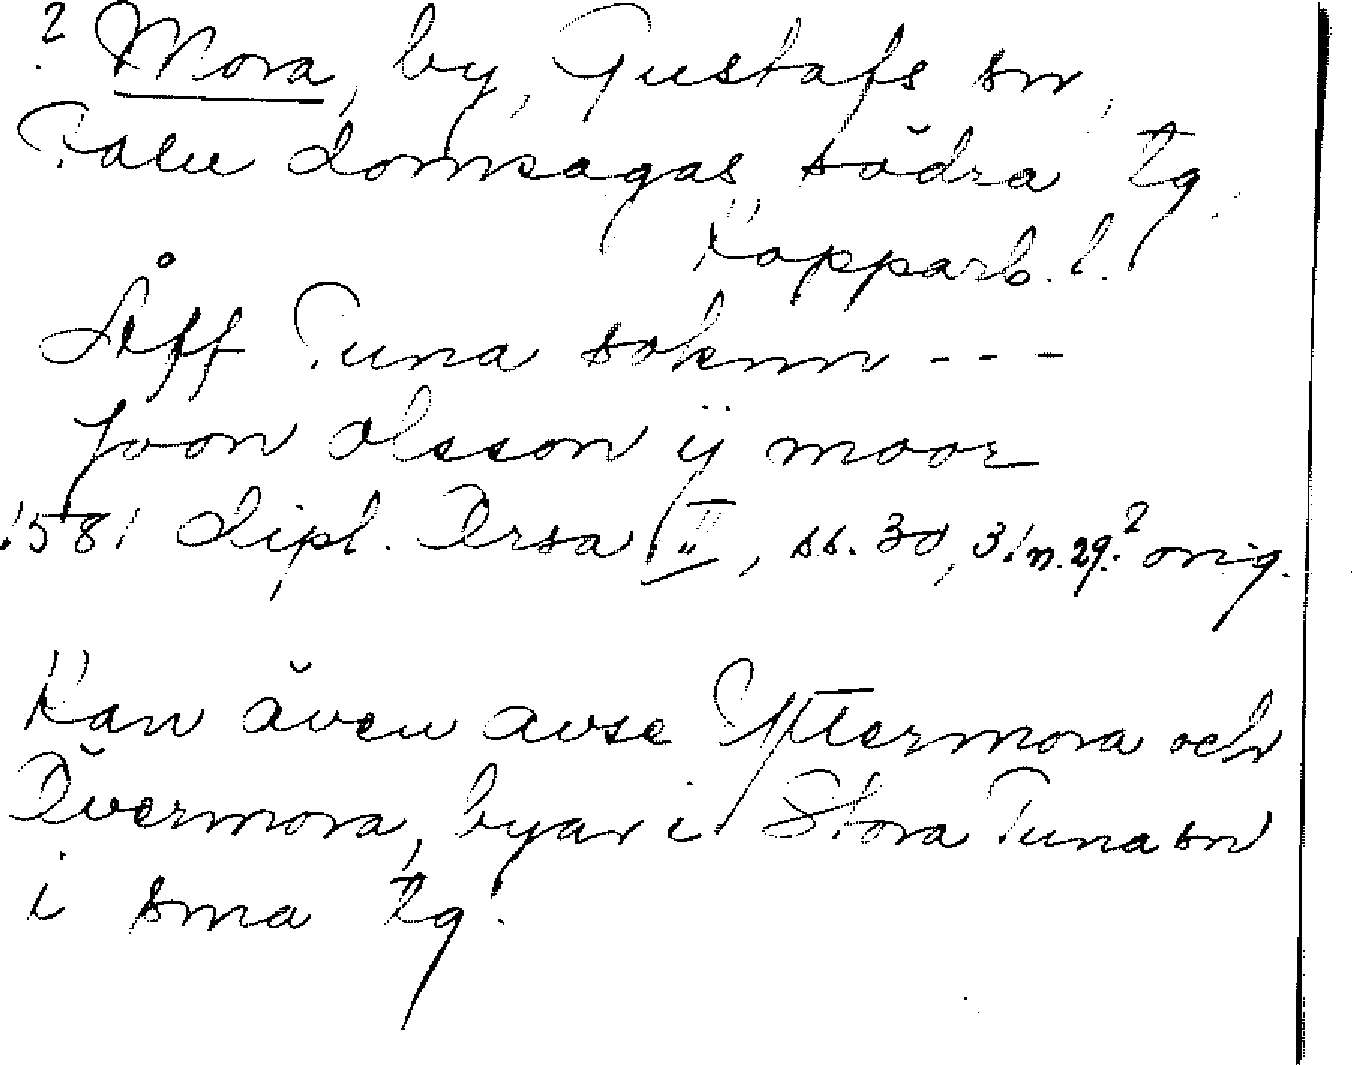 ? Mora, by, Gustafs sn,
Falu domsagas södra tg.
Kopparb. l.
Åff Tuna soknn - - -
Joon Olsson ij moor
1581 Dipl. Orsa II, ss. 30, 31 n. 29.? orig.
Kan även avse Yttermora och
Övermora, byar i Stora Tuna sn
i sma tg.